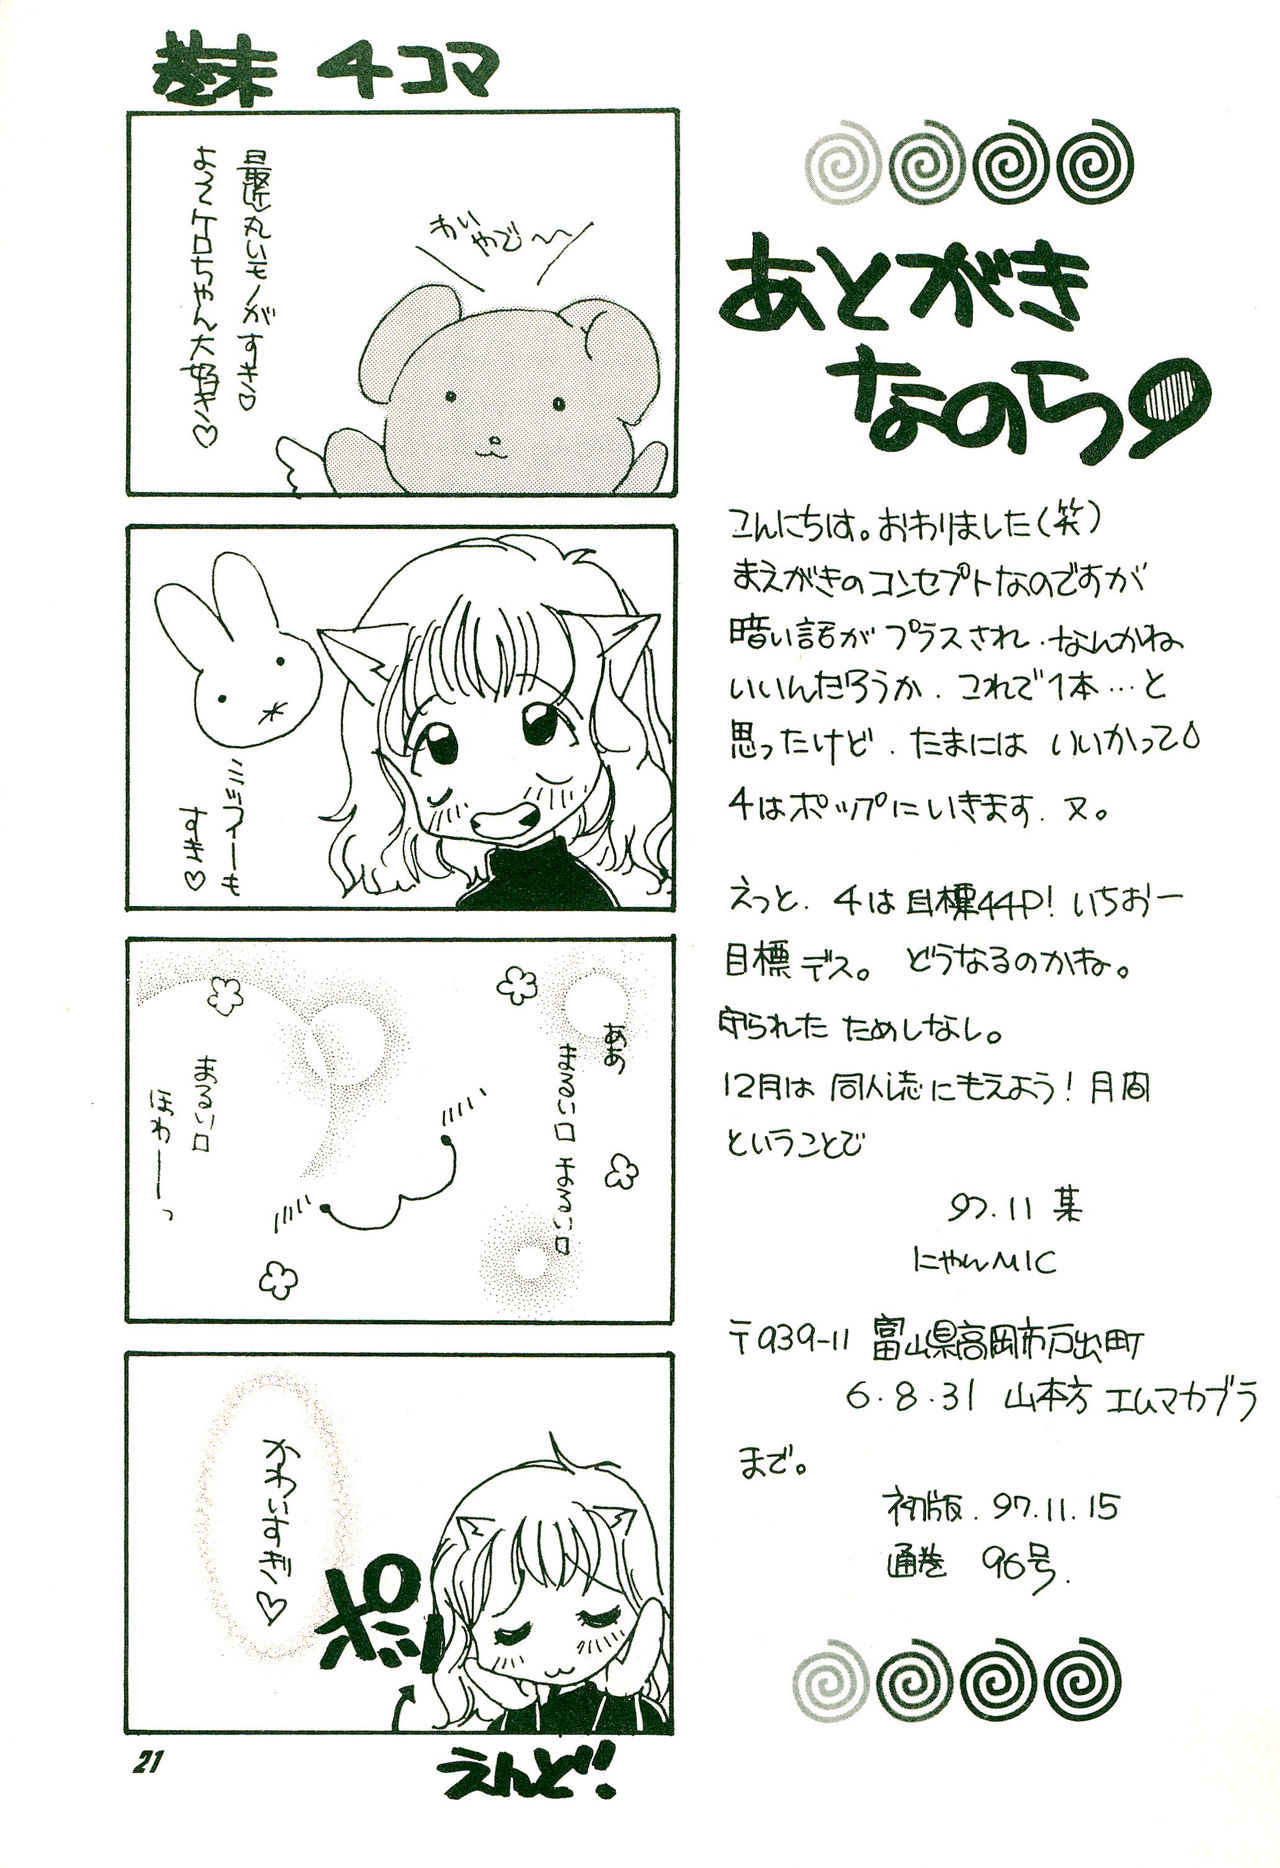 あとがき
なのら
こんにちは。おわりました(笑)
まえがきのコンセプトなのですが
暗い話がプラスされ、なんかね
いいんだろうか、これで1本…と
思ったけど、たまには いいかって
4はポップにいきます、又。
えっと、4は目標44P!いちおー
目標デス。どうなるのかね。
守られた ためしなし。
12月は 同人誌にもえよう!月間
ということで
97.11 某
にゃんMIC
〒939-11 富山県高岡市戸出町
6.8.31 山本方 エムマカブラ
まで。
初版.97.11.15
通巻 96号.
巻末 4コマ
わいやで〜
最近丸いモノがすき♡
よってケロちゃん大好き♡
ミッフィーも
すき♡
ああ
まるい口 まるい口
まるい口
ほわーっ
かわいすぎ♡
ポッ
えんど!!
21